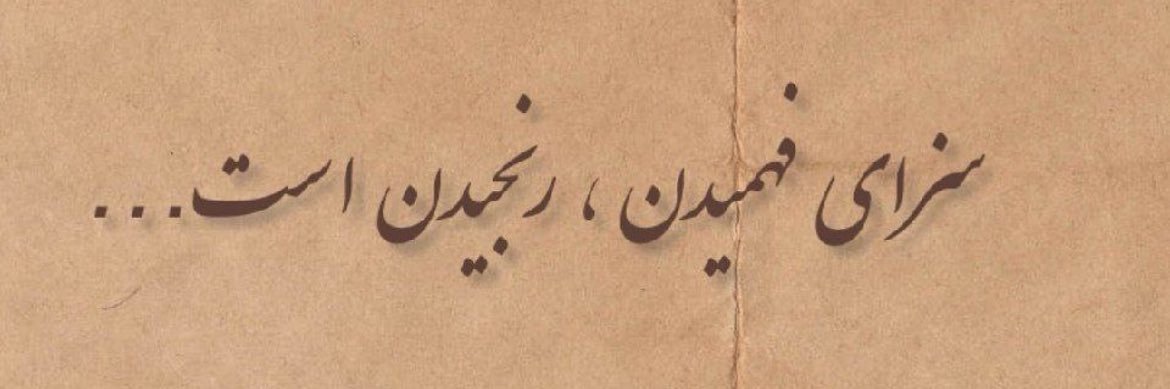 سزای فهمیدن ، رنجیدن است...